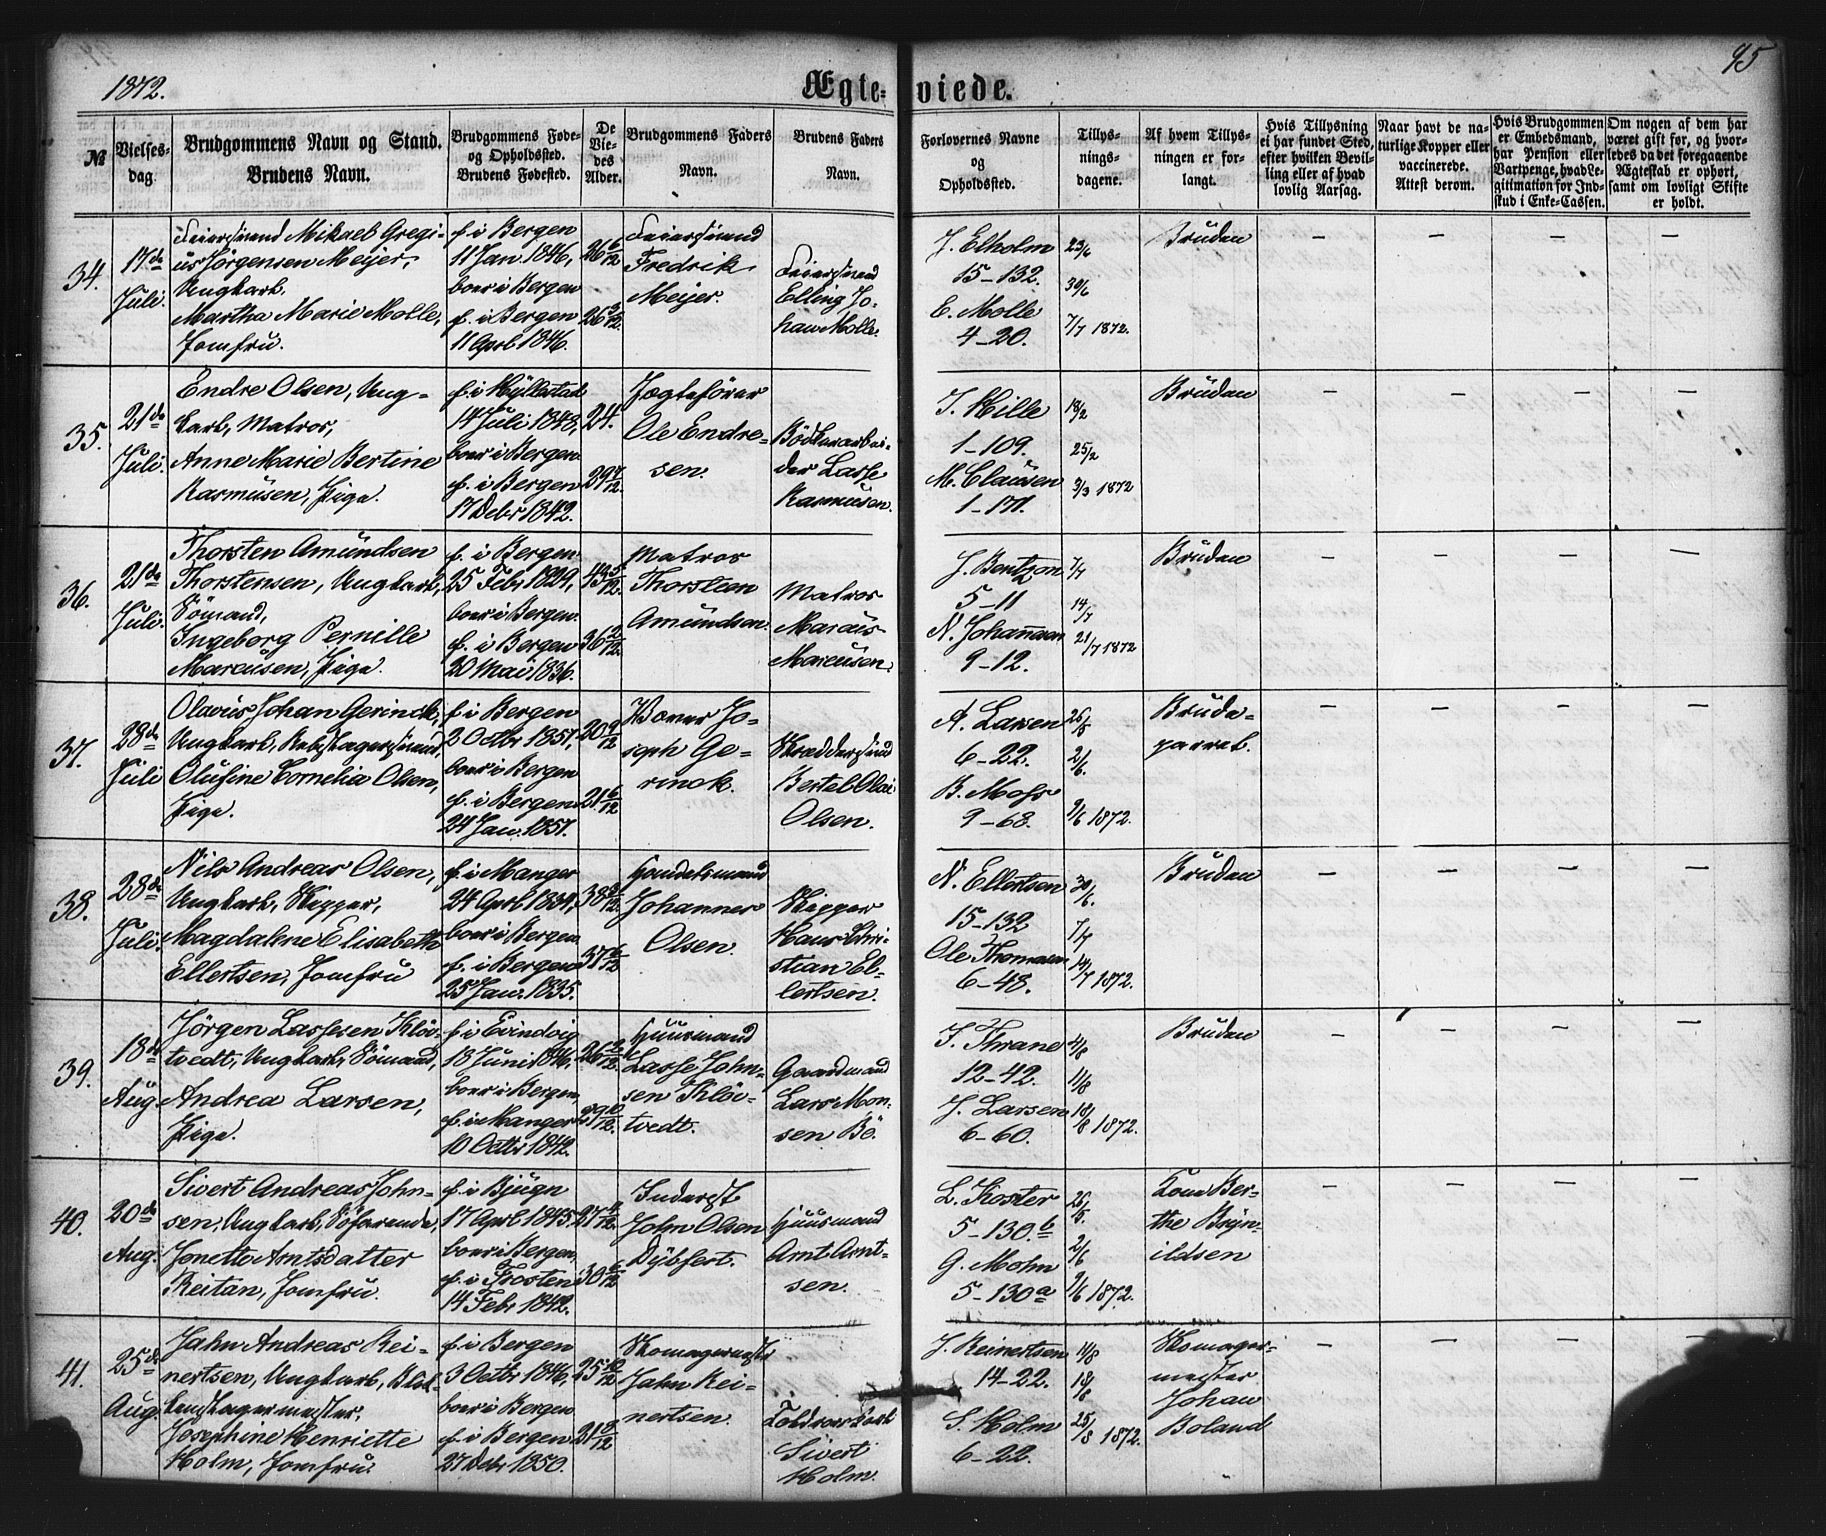 1872.
Ægte-
viede.
95
№
Vielses-
dag.
Brudgommens Navn og Stand.
Brudens Navn.
Brudgommens Føde-
og Opholdssted.
Brudens Fødested.
De
Vie-
des
Alder.
Brudgommens Faders
Navn.
Brudens Faders
Navn.
Forlovernes Navne
og
Opholdssted.
Tillys-
nings-
dagene.
Af hvem Tillys-
ningen er for-
langt.
Hvis Tillysning
ei har fundet Sted,
efter hvilken Bevil-
ling eller af hvad
lovlig Aarsag.
Naar havt de na-
turlige Kopper eller
vaccinerede.
Attest derom.
Hvis Brudgommen
er Embedsmand,
har Pension eller
Vartpenge, hvad Le-
gitimation for Ind-
skud i Enke-Cassen.
Om nogen af dem har
været gift for, og hvor-
ledes da det foregaaende
Ægteskab er ophørt,
samt om lovligt Skifte
er holdt.
34.
17de
Juli.
Feiersvend Mikael Gregi-
us Jørgensen Meijer,
Ungkarl.
Martha Marie Molle,
Jomfru.
f. i Bergen
11 Jan. 1846,
boer i Bergen
f. i Bergen
11 Aprl 1846.
26 6/12
26 3/12
Feiersvend
Fredrik
Meijer.
Feiersvend
Elling Jo-
han Molle.
J. Elholm
15-132.
E. Molle
4-20.
23/6
30/6
7/7 1872.
Bruden
35.
21de
Juli.
Endre Olsen, Ung-
karl, Matros,
Anne Marie Bertine
Rasmusen, Pige.
f. i Hyllestad
14 Juli 1848,
boer i Bergen.
f. i Bergen
17 Debr 1842.
24.
29 7/12.
Jægtefører
Ole Endre-
sen.
Bødkerarbei-
der Lasse
Rasmusen.
J. Hille
1-109.
M. Clausen
1-171.
18/2
25/2
3/3 1872
Bruden
36.
21de
Juli.
Thorsten Amundsen
Thorstensen, Ungkarl,
Sömand,
Ingeborg Pernille
Marcusen, Pige.
f. i Bergen
25 Febr 1829,
boer i Bergen.
f. i Bergen
20 Mai 1836.
43 5/12
36 2/12
Matros
Thorsteen
Amundsen.
Matros
Marcus
Marcusen.
J. Bentzon
5-11
N. Johannsen
9-12.
7/7
14/7
21/7 1872
Bruden
37.
28de
Juli
Olavus Johan Gerinck,
Ungkarl, Rebslagersvend,
Olufine Cornelia Olsen,
Pige.
f. i Bergen
2 Octbr 1851,
boer i Bergen
f. i Bergen
24 Jan. 1851.
20 9/12
21 6/12
Woner Jo-
seph Ge-
rinck.
Skreddersvend
Bertel Olai
Olsen.
A. Larsen
6-22.
B. Mohr
9-68.
26/5
2/6.
9/6 1872.
Brude-
parret.
38.
28de
Juli.
Nils Andreas Olsen,
Ungkarl, Skipper,
Magdalene Elisabeth
Ellertsen, Jomfru
f. i Manger
24 Aprl 1834,
boer i Bergen.
f. i Bergen
25 Jan. 1835.
38 3/12.
37 6/12
Handelsmand
Johannes
Olsen.
Skipper
Hans Chri-
stian El-
lertsen.
N. Ellertsen
15-132
Ole Thomassen
6-48.
30/6.
7/7
14/7 1872.
Bruden
39.
18de
Aug.
Jörgen Lassesen Klöv-
tvedt, Ungkarl, Sömand,
Andrea Larsen,
Pige.
f. i Evindvig
18 Juni 1846,
boer i Bergen,
f. i Manger
10 Octbr 1842.
26 2/12.
29 10/12.
Huusmand
Lasse John-
sen Klöv-
tvedt.
Gaardmand
Lars Mon-
sen Bö.
J. Thrane
12-42.
J. Larsen
6-60.
4/8
11/8
18/8 1872.
Bruden
40.
20de
Aug.
Sivert Andreas John-
sen, Ungkarl, Söfarende,
Jonetta Arntsdatter
Reitan, Jomfru.
f. i Bjugn
17 Aprl 1845.
boer i Bergen,
f. i Frosten
14 Febr 1842.
27 4/12.
30 6/12
Inderst
John Olsen
Dybfert.
Huusmand
Arnt Arnt-
sen.
L. Koster
5-130.b
G. Mohn
5-130a
26/5.
2/6
9/6 1872.
Kone Ber-
the Bryn-
ildsen
41.
25de
Aug.
Jahn Andreas Rei-
nertsen, Ungkarl, Blok-
kenslagermester,
Josephine Henriette
Holm, Jomfru.
f. i Bergen
3 Octbr 1846,
boer i Bergen
f. i Bergen
27 Debr 1850.
25 10/12
21 8/12
Skomagermester
Jahn Rei-
nertsen.
Toldroerskarl
Sivert
Holm.
J. Reinertsen
14-22.
S. Holm
6-22.
11/8
18/8
25/8 1872.
Skomager-
mester
Johan
Boland